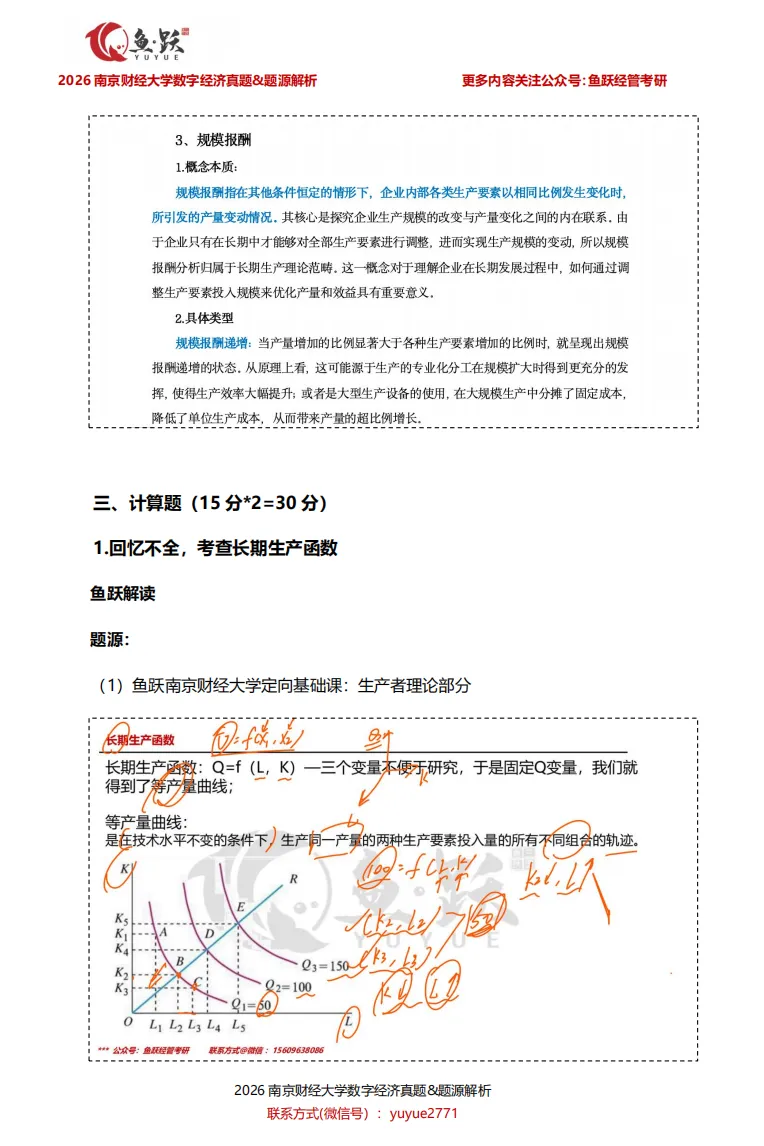 鱼跃
YUYUE
2026 南京财经大学数字经济真题&题源解析 更多内容关注公众号：鱼跃经管考研
3、规模报酬
1.概念本质：
规模报酬指在其他条件恒定的情形下，企业内部各类生产要素以相同比例发生变化时，
所引发的产量变动情况。其核心是探究企业生产规模的改变与产量变化之间的内在联系。由
于企业只有在长期中才能够对全部生产要素进行调整，进而实现生产规模的变动，所以规模
报酬分析归属于长期生产理论范畴。这一概念对于理解企业在长期发展过程中，如何通过调
整生产要素投入规模来优化产量和效益具有重要意义。
2.具体类型
规模报酬递增：当产量增加的比例显著大于各种生产要素增加的比例时，就呈现出规模
报酬递增的状态。从原理上看，这可能源于生产的专业化分工在规模扩大时得到更充分的发
挥，使得生产效率大幅提升；或者是大型生产设备的使用，在大规模生产中分摊了固定成本，
降低了单位生产成本，从而带来产量的超比例增长。
三、计算题（15 分*2=30 分）
1.回忆不全，考查长期生产函数
鱼跃解读
题源：
（1）鱼跃南京财经大学定向基础课：生产者理论部分
长期生产函数
长期生产函数：Q=f（L，K）—三个变量不便于研究，于是固定Q变量，我们就
得到了等产量曲线；
等产量曲线：
是在技术水平不变的条件下，生产同一产量的两种生产要素投入量的所有不同组合的轨迹。
100=f(L,K)
K↓, L↑
(K2, L2) 50
(K3, L3)
K↓ L↑
鱼跃
YUYUE
K
R
E
K5
K1 A
D
K4
B
K2
C
K3
Q3=150
Q2=100
Q1=50
O L1 L2 L3 L4 L5 L
*** 公众号：鱼跃经管考研 联系方式@微信：15609638086
2026 南京财经大学数字经济真题&题源解析
联系方式(微信号）：yuyue2771